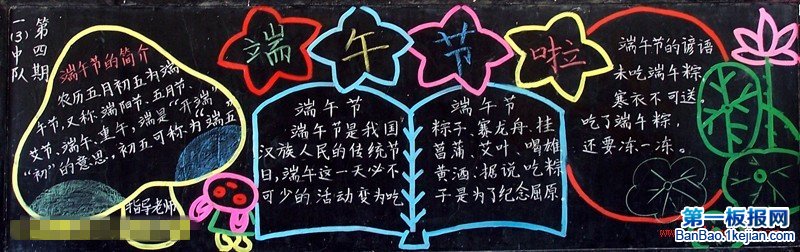 第四期
一(3)中队
端午节啦
端午节的简介
农历五月初五为端
午节,又称端阳节、五月节、
艾节、端午、重午,端是“开端”
“初”的意思,初五可称为“端五”
指导老师
端午节
端午节是我国
汉族人民的传统节
日,端午这一天必不
可少的活动变为吃
端午节
粽子、赛龙舟、挂
菖蒲、艾叶、喝雄
黄酒.据说,吃粽
子是为了纪念屈原.
端午节的谚语
未吃端午粽,
寒衣不可送。
吃了端午粽,
还要冻一冻。
第一板报网
BanBao.1kejian.com